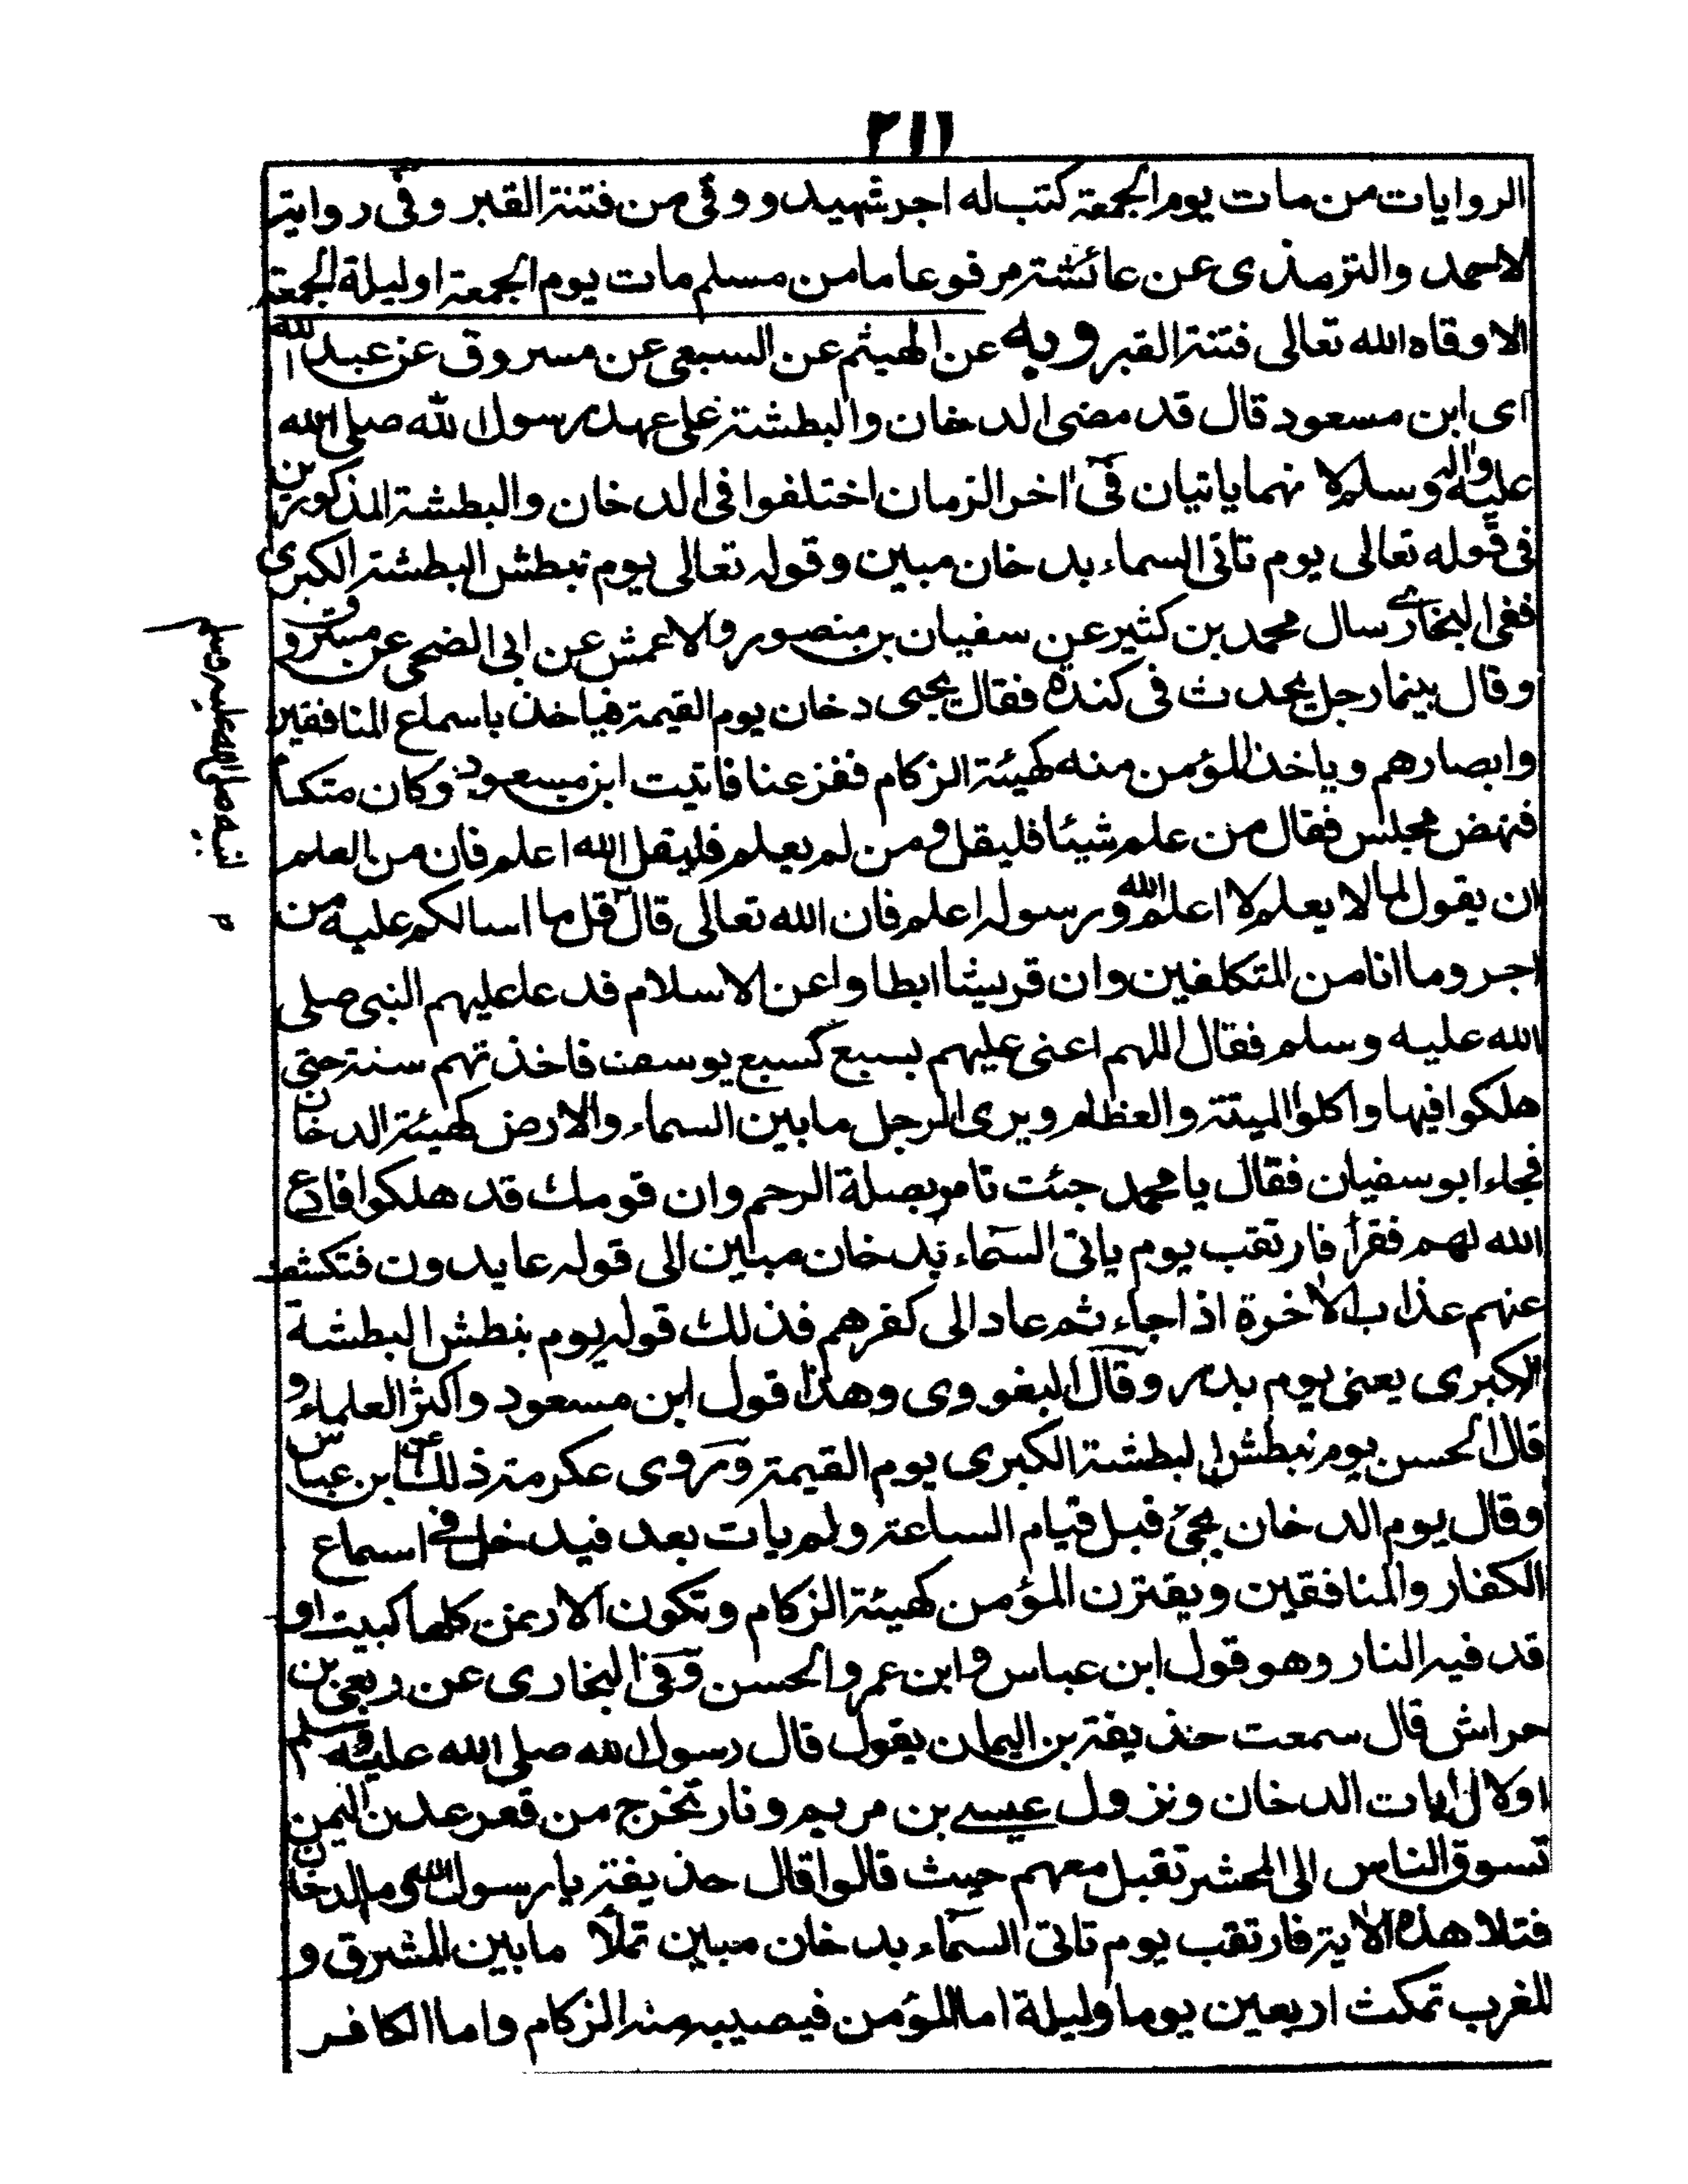 ٢١١
الروايات من مات يوم الجمعة كتب له اجر شهيد ووقى من فتنة القبر وفى رواية
لاحمد والترمذى عن عائشة مرفوعا ما من مسلم مات يوم الجمعة او ليلة الجمعة
الا وقاه الله تعالى فتنة القبر وبه عن الهيثم عن السبعى عن مسروق عن عبد الله
اى ابن مسعود قال قد مضى الدخان والبطشة على عهد رسول الله صلى الله
عليه واله وسلم لا نهما ياتيان فى اخر الزمان اختلفوا فى الدخان والبطشة المذكورين
فى قوله تعالى يوم تاتى السماء بدخان مبين وقوله تعالى يوم نبطش البطشة الكبرى
ففى البخارى سال محمد بن كثير عن سفيان بن منصور والاعمش عن ابى الضحى عن مسروق
وقال بينما رجل يحدث فى كندة فقال يجئ دخان يوم القيمة فياخذ باسماع المنافقين
وابصارهم وياخذ المؤمن منه كهيئة الزكام ففزعنا فاتيت ابن مسعود وكان متكئا
فنهض مجلس فقال من علم شيئا فليقل ومن لم يعلم فليقل الله اعلم فان من العلم
ان يقول لما لا يعلم لا اعلم الله ورسوله اعلم فان الله تعالى قال قل ما اسالكم عليه من
اجر وما انا من المتكلفين وان قريشا ابطاوا عن الاسلام فدعا عليهم النبى صلى
الله عليه وسلم فقال اللهم اعنى عليهم بسبع كسبع يوسف فاخذتهم سنة حتى
هلكوا فيها واكلوا الميتة والعظام ويرى الرجل ما بين السماء والارض كهيئة الدخان
فجاء ابو سفيان فقال يا محمد جئت تامر بصلة الرحم وان قومك قد هلكوا فادع
الله لهم فقرأ فارتقب يوم ياتى السماء بدخان مبين الى قوله عايدون فتكشف
عنهم عذاب الاخرة اذا جاء ثم عاد الى كفرهم فذلك قوله يوم بنطش البطشة
الكبرى يعنى يوم بدر وقال البغووى وهذا قول ابن مسعود واكثر العلماء و
قال الحسن يوم نبطش البطشة الكبرى يوم القيمة وروى عكرمة ذلك عن ابن عباس
وقال يوم الدخان يجئ قبل قيام الساعة ولم يات بعد فيدخل فى اسماع
الكفار والمنافقين ويقترن المؤمن كهيئة الزكام وتكون الارض كلها كبيت او
قد فيه النار وهو قول ابن عباس وابن عمر والحسن وفى البخارى عن ربعى بن
حراش قال سمعت حذيفة بن اليمان يقول قال رسول الله صلى الله عليه وسلم
اولا الايات الدخان ونزول عيسے بن مريم ونار تخرج من قعر عدن اليمن
تسوق الناس الى المحشر تقبل معهم حيث قالوا قال حذيفة يا رسول الله وما الدخان
فتلا هذه الاية فارتقب يوم تاتى السماء بدخان مبين تملأ ما بين المشرق و
المغرب تمكث اربعين يوما وليلة اما المؤمن فيصيبه منه الزكام واما الكافر
صلى الله عليه وسلم